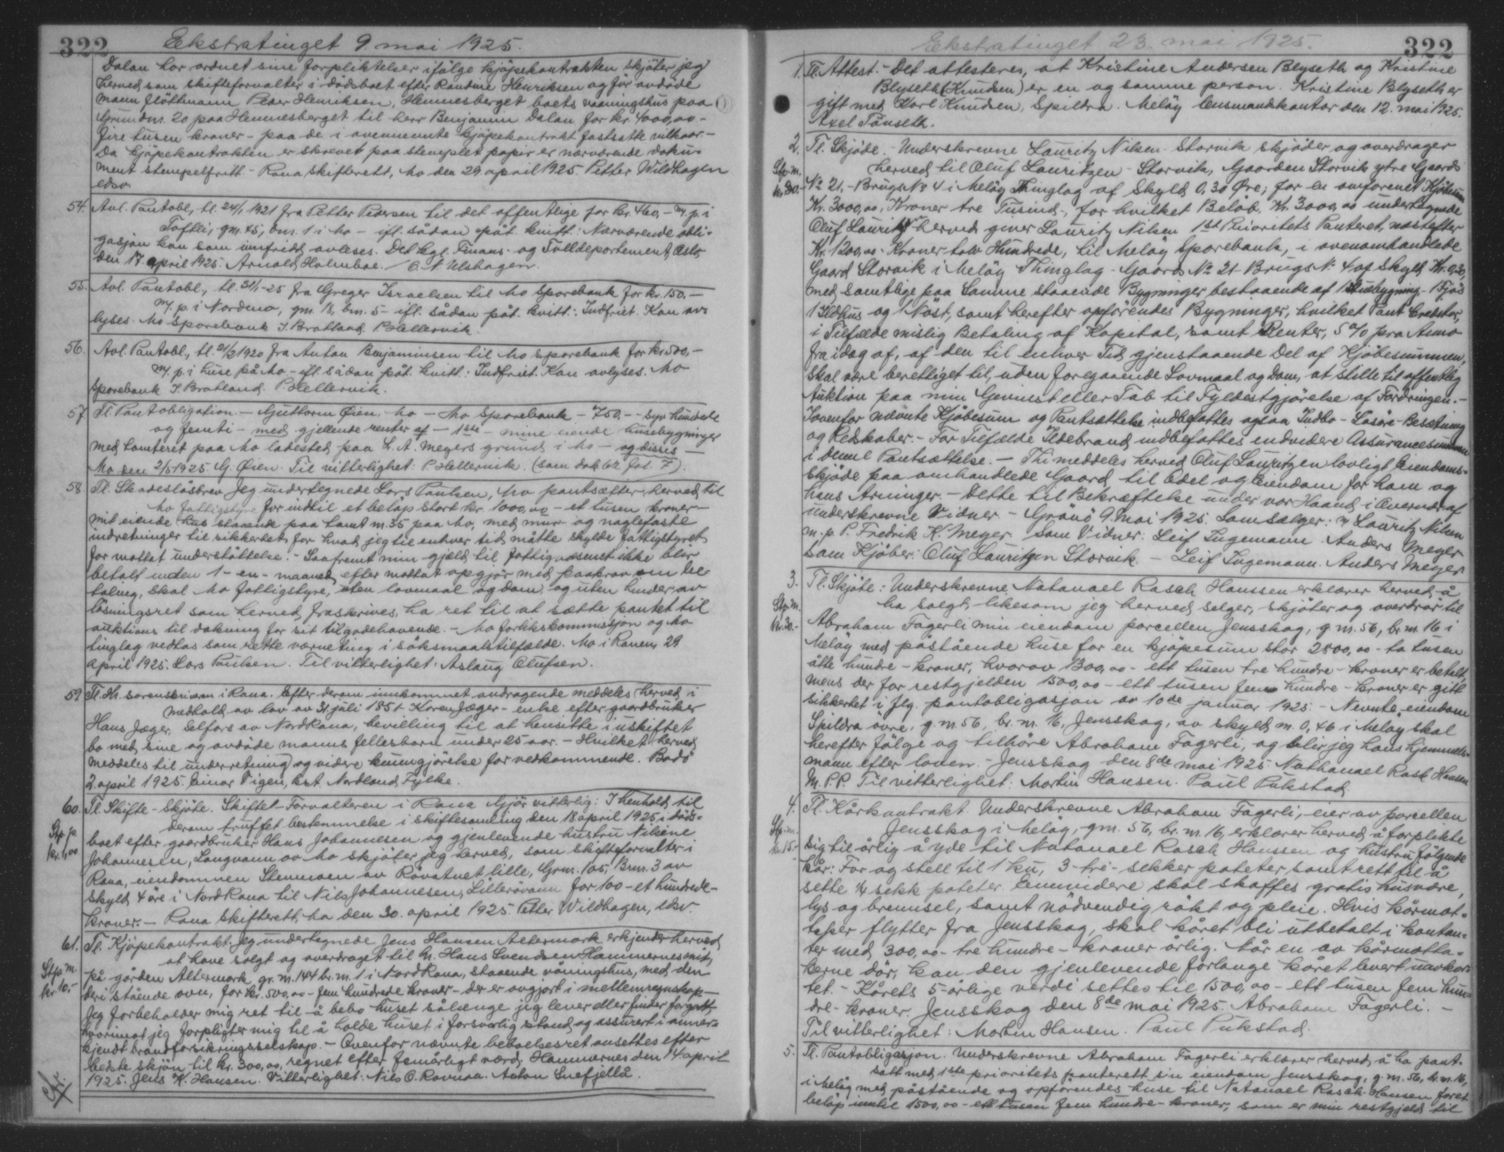 322 Ekstratinget 9 mai 1925.
Dalan har ordnet sine forpliktelser ifølge kjøpekontrakten skjøter jeg
herved som skifteforvalter i dødsboet efter Randine Henriksen og før avdøde
mann Peder Henriksen, Hennesberget boets vaaningshus paa
Grundnr. 20 paa Hennesberget til herr Benjamin Dalan for kr 4000,00 -
fire tusen kroner - paa de i ovennevnte kjøpekontrakt fastsatte vilkaar -
Da kjøpekontrakten er skrevet paa stemplet papir er nærværende doku-
ment stempelfritt - Rana Skifterett, Mo den 29 april 1925 Petter Wildhagen
edsv
54. Avl. Pantobl, tl. 24/1 1921 fra Petter Pedersen til det offentlige for kr 460,- m. p. i
Toftli, gm. 45, bnr. 1 i Mo - ift. sådan påt. kvitt: Nærværende obli-
gasjon kan som innfridd avleses. Det kgl. Finans- og Tolldepartement, Oslo
den 17 april 1925. Arnold Holmboe. / C. N. Ulshagen.
55. Avl. Pantobl, tl. 31/1-25 fra Greger Israelsen til Mo Sparebank for kr 150,-
m. p. i Nordmo, gm. 18, bm. 5 - ift. sådan påt. kvitt: Indfriet. Kan av-
lyses. Mo Sparebank J. Bratland P. Hellervik.
56. Avl. Pantobl, tl. 1920 fra Anton Benjaminsen til Mo Sparebank for kr 500,-
m. p. i huse på Mo - ift. sådan påt. kvitt: Indfriet. Kan avlyses. Mo
Sparebank J. Bratland. P. Hellervik.
57. Tl. Pantobligation. - Guttorm Øien, Mo - Mo Sparebank - 750,- syv hundrede
og femti - med gjeldende renter af - 1ste - mine eiende husebygninger
med tomterit paa Mo ladested paa L. A. Meyers grund i Mo - og disses -
Mo den 2/5 1925 G. Øien. Til vitterlighet. P. Hellervik. (som dok 62 fol 7).
58. Tl. Skadesløsbrev Jeg undertegnede Lars Paulsen, Mo pantsætter herved til
Mo fattigstyre for indtil et beløp stort kr. 1000,00 - et tusen kroner -
mit eiende hus staaende paa tomt nr. 35 paa Mo, med mur- og naglefaste
indretninger til sikkerhet for hvad jeg til enhver tid måtte skylde fattigstyret
for mottat understøttelse. - Saafremt min gjeld til fattigvæsenet ikke blir
betalt inden 1 - en - maaned, efter mottat opgjør med paakrav om be-
taling, skal Mo fattigstyre, uten lovmaal og dom og uten hinder av
løsningsret som herved fraskrives, ha ret til at sætte pantet til
auktions til dækning for sit tilgodehavende. - Mo forlikskommissjon og Mo
tinglag vedtas som rette værneting i søksmaalstilfælde. Mo i Ranen, 29
april 1925. Lars Paulsen. Til vitterlighet: Aslaug Olufsen.
59. Tl. Th. sorenskriveren i Rana. Efter derom innkommet andragende meddeles herved i
medhold av lov av 31 juli 1851 Karen Jæger - enke efter gaardbruker
Hans Jæger, Selfors av Nordrana, bevilling til at hensitte i uskiftet
bo med sine og avdøde manns fellesbarn under 25 aar. - Hvilket herved
meddeles til underretning og videre kunngjørelse for vedkommende. Bodø
2. april 1925. Einar Vigen, kst. Nordland Fylke.
60. Tl. Skifte-skjøte. Skiftet Forvalteren i Rana Gjør vitterlig: I henhold til
Stp. p. derom truffet bestemmelse i skiftesamling den 18 april 1925 i døds-
kr 1,00 boet efter gaardbruker Hans Johannesen og gjenlevende hustru Nikoline
Johannesen, Langvann av Mo skjøter jeg herved, som skifteforvalter i
Rana, eiendommen Stenmoen av Røvatnet lille, Grnr. 105, Bnr. 3 av
skyld 4 øre i NordRana til Nils Johannesen, Lillerøvann for 100 - et hundrede -
kroner. - Rana Skifterett, Mo den 30. april 1925. Petter Wildhagen, edsv.
61. Tl. Kjøpekontrakt. Jeg undertegnede Jens Hansen Altermark erkjender herved
Stp. m. at have solgt og overdraget til hr. Hans Svendsen Hammernes mit,
kr 10,- på gården Altermark, gr. nr. 144 br. nr. 1 i Nord Rana, staaende våningshus, med den
deri stående ovn, for kr. 500,00 - fem hundrede kroner - der er avgjort i mellemregnskap. -
Jeg forbeholder mig ret til å bebo huset sålænge jeg lever eller finder for godt,
hvorimot jeg forpligter mig til å holde huset i forsvarlig stand, og assurert i anner-
kjendt brandforsikringsselskap. - Ovenfor nævnte beboelsesret ansettes efter
bedste skjøn til kr. 300,00, regnet efter femårligt værd. Hammernes den 14 april
1925. Jens H. Hansen. Vitterlighet: Nils O. Rovnaa. Anton Snefjellå.
Ekstratinget 23. mai 1925. 322
1. Tl. Attest. - Det attesteres, at Kristine Andersen Blyseth og Kristine
Blyseth (Knudsen) er en og samme person. Kristine Blyseth er
gift med Karl Knudsen, Spildra. Meløy lensmandkontor den 12. mai 1925.
Axel Tønseth.
2. Tl. Skjøde. - Underskrevne Lauritz Nilsen Storvik skjøder og overdrager
Stp. m. herved til Oluf Lauritzen Storvik, Gaarden Storvik ytre Gaards
No 21, Brugs No 4 i Meløy Thinglag af Skyld 0,30 Øre, for en omforenet Kjøbesum
Kr. 3000,00, Kroner tre Tusind, for hvilket Beløb Kr. 3000,00 undertegnede
Oluf Lauritzen herved giver Lauritz Nilsen 1ste Prioritets Panteret, næstefter
Kr. 1200,00 - Kroner tolv Hundrede, til Meløy Sparebank, i ovenomhandlede
Gaard Storvik i Meløy Thinglag. Gaards No 21 Brugs No 4 af Skyld Kr. 0,30,
med samtlige paa Samme staaende Bygninger bestaaende af 1 Stuebygning - 1 Fjøs
1 Ildhus og Nøst, samt herefter opførendes Bygninger, hvilket Pant Creditor,
i Tilfælde mislig Betaling af Kapital, samt Renter, 5 o/o pro Anno
fra idag af, af den til enhver Tid gjenstaaende Del af Kjøbesummen,
skal være berettiget til, uden foregaaende Lovmaal og Dom, at stille til offentlig
Auktion paa min Gevinst eller Tab til Fyldestgjørelse af Fordringen. -
I ovenfor nævnte Kjøbesum og Pantsættelse indbefattes ogsaa Indbo - Løsøre - Besætning
og Redskaber - For Tilfælde Ildebrand indbefattes endvidere Assurancesummen
i denne Pantsættelse. - Thi meddeles herved Oluf Lauritzen lovligt Eiendoms-
skjøde paa omhandlede Gaard til Odel og Eiendom for ham og
hans Arvinger - Dette til Bekræftelse under vor Haand i Overvær af
underskrevne Vidner - Grønø 9 Mai 1925. Som sælger: Lauritz Nilsen
m. p. P. Fredrik K. Meyer Som Vidner: Leif Ingemann Anders Meyer
Som Kjøber: Oluf Lauritzen Storvik - Leif Ingemann. Anders Meyer
3. Tl. Skjøte: Underskrevne Natanael Rasch Hanssen erklærer herved å
Stp. m. ha solgt, likesom jeg herved selger, skjøter og overdrar til
Abraham Fagerli min eiendom parcellen Jensskog, g. nr. 56, br. nr. 16 i
Meløy med påstående huse for en kjøpesum stor 2800,00 - to tusen
åtte hundre - kroner, hvorav 1300,00 - ett tusen tre hundre - kroner er betalt,
mens der for restgjelden 1500,00 - ett tusen fem hundre - kroner er gitt
sikkerhet i flg. pantobligasjon av 10de januar 1925 - Nevnte eiendom
Spildra øvre, g. nr. 56, br. nr. 16, Jensskog, av skyld m 0,46 i Meløy skal
herefter følge og tilhøre Abraham Fagerli, og blir jeg hans hjemmels-
mann efter loven. - Jensskog den 8de mai 1925. Nathanael Rasch Hansen
m. p. p. Til vitterlighet: Martin Hansen. Paul Pukstad
4. Tl. Kårkontrakt. Underskrevne Abraham Fagerli, eier av parcellen
Stp. m. Jensskog i Meløy, gnr. 56, br. nr. 16, erklærer herved å forplikte
kr. 15.- sig til årlig å yde til Natanael Rasch Hanssen og hustru følgende
kår: For og stell til 1 ku, 3 - tre - sekker poteter, samt rett til å
sette 1/4 sekk poteter. Ennvidere skal skaffes gratis husvære,
lys og brensel, samt nødvendig røkt og pleie. Hvis kårmot-
tager flytter fra Jensskog, skal kåret bli utbetalt i kontan-
ter med 300,00 - tre hundre - kroner årlig. Når en av kårmotta-
kerne dør, kan den gjenlevende forlange kåret levert uavkor-
tet. - Kårets 5-årlige verdi settes til 1500,00 - ett tusen fem hun-
dre - kroner. Jensskog den 8de mai 1925. Abraham Fagerli. -
Til vitterlighet: Martin Hansen. Paul Pukstad
5. Tl. Pantobligasjon. Underskrevne Abraham Fagerli erklærer herved, å ha pant-
satt med 1ste prioritets panterett sin eiendom Jensskog, g. nr. 56, br. nr. 16,
i Meløy med påstående og opførendes huse til Natanael Rasch Hansen for et
beløp inntil 1500,00 - ett tusen fem hundre - kroner, som er min restgjeld til